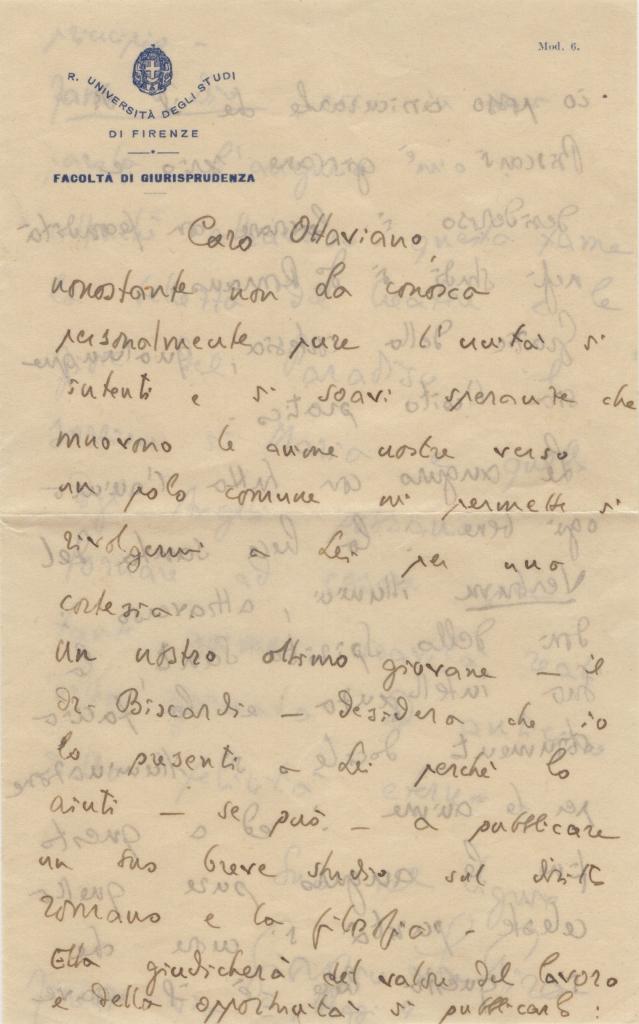 Mod. 6.
R. UNIVERSITÀ DEGLI STUDI
DI FIRENZE
FACOLTÀ DI GIURISPRUDENZA
Caro Ottaviano,
nonostante non La conosca
personalmente pure l'unità di
intenti e di soavi speranze che
muovono le anime nostre verso
un polo comune mi permette di
rivolgermi a Lei per una
cortesia.
Un nostro ottimo giovane – il
Dr. Biscardi – desidera che io
lo presenti a Lei perchè lo
aiuti – se può – a pubblicare
un suo breve studio sul diritto
romano e la filosofia.
Ella giudicherà del valore del lavoro
e della opportunità di pubblicarlo: